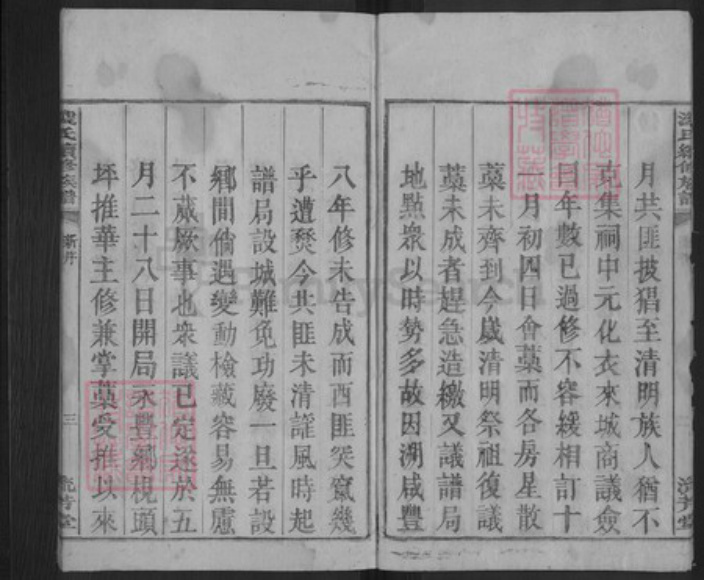 月共匪披猖至清明族人猶不
克集祠中元化衣來城商議僉
曰年數已過修不容緩相訂十
一月初四日會藁而各房星散
藁未齊到今歲清明祭祖復議
藁未成者趕急造繳又議譜局
地點衆以時勢多故因溯咸豐
八年修未告成而西匪突竄幾
乎遭燹今共匪未清謠風時起
譜局設城難免功廢一旦若設
鄉間倘遇變動檢藏容易無慮
不蕆厥事也衆議已定遂於五
月二十八日開局永豐鄉梘頭
坪推華主修兼掌藁受推以來
氏續修族譜
新序
三
流芳堂